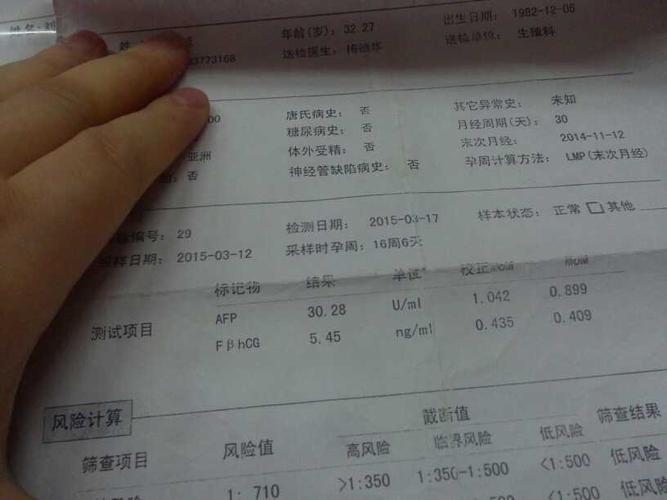 姓名: 刘
年龄(岁): 32.27 出生日期: 1982-12-06
3773168 送检医生: 送检单位: 生殖科
00 唐氏病史: 否 其它异常史: 未知
糖尿病史: 否 月经周期(天): 30
亚洲 体外受精: 否 末次月经: 2014-11-12
否 神经管缺陷病史: 否 孕周计算方法: LMP(末次月经)
编号: 29 检测日期: 2015-03-17 样本状态: 正常 其他
采样日期: 2015-03-12 采样时孕周: 16周6天
标记物 结果 单位 校正MoM MoM
测试项目 AFP 30.28 U/ml 1.042 0.899
FβhCG 5.45 ng/ml 0.435 0.409
风险计算 截断值
筛查项目 风险值 高风险 临界风险 低风险 筛查结果
1: 710 >1:350 1:350-1:500 <1:500 低风险